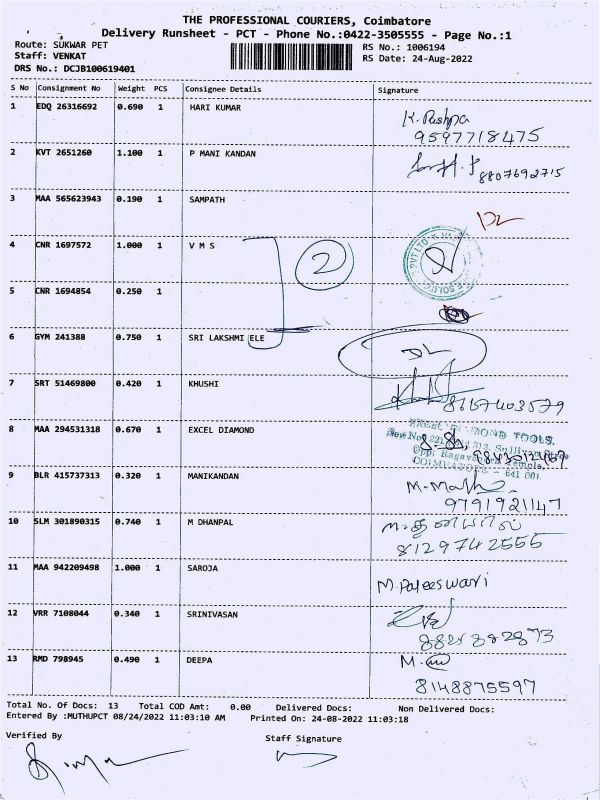 THE PROFESSIONAL COURIERS, Coimbatore
Delivery Runsheet - PCT - Phone No.:0422-3505555 - Page No.:1
Route: SUKWAR PET RS No.: 1006194
Staff: VENKAT RS Date: 24-Aug-2022
DRS No.: DCJB100619401
S No Consignment No Weight PCS Consignee Details Signature
1 EDQ 26316692 0.690 1 HARI KUMAR K. Pushpa
9597718475
2 KVT 2651260 1.100 1 P MANI KANDAN
8807692715
3 MAA 565623943 0.190 1 SAMPATH
4 CNR 1697572 1.000 1 V M S 2
5 CNR 1694854 0.250 1
6 GYM 241388 0.750 1 SRI LAKSHMI ELE
7 SRT 51469800 0.420 1 KHUSHI
8167403579
8 MAA 294531318 0.670 1 EXCEL DIAMOND
TOOLS.
COIMBATORE - 641 001.
9 BLR 415737313 0.320 1 MANIKANDAN
9791921147
10 SLM 301890315 0.740 1 M DHANPAL
8129742555
11 MAA 942209498 1.000 1 SAROJA M. Rajeeswari
12 VRR 7108044 0.340 1 SRINIVASAN
13 RMD 798945 0.490 1 DEEPA
8148875597
Total No. Of Docs: 13 Total COD Amt: 0.00 Delivered Docs: Non Delivered Docs:
Entered By :MUTHUPCT 08/24/2022 11:03:10 AM Printed On: 24-08-2022 11:03:18
Verified By Staff Signature